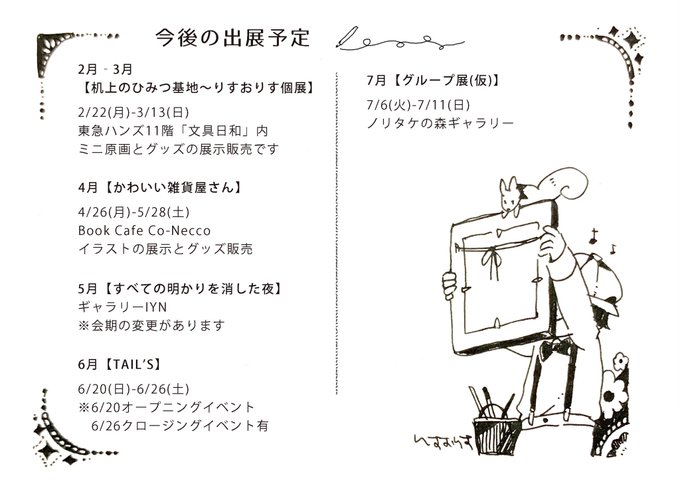 今後の出展予定
2月‐3月
【机上のひみつ基地〜りすおりす個展】
2/22(月)-3/13(日)
東急ハンズ11階「文具日和」内
ミニ原画とグッズの展示販売です
4月【かわいい雑貨屋さん】
4/26(月)-5/28(土)
Book Cafe Co-Necco
イラストの展示とグッズ販売
5月【すべての明かりを消した夜】
ギャラリーIYN
※会期の変更があります
6月【TAIL’S】
6/20(日)-6/26(土)
※6/20オープニングイベント
6/26クロージングイベント有
7月【グループ展(仮)】
7/6(火)-7/11(日)
ノリタケの森ギャラリー
りすおりす